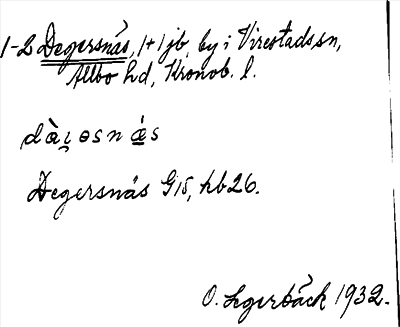 1-2 Degersnäs, 1+1 jb, by i Virestads sn,
Allbo hd, Kronob. l.
dàı̯ɘsnás
Degersnäs G15, hb 26.
O. Legerbäck 1932.